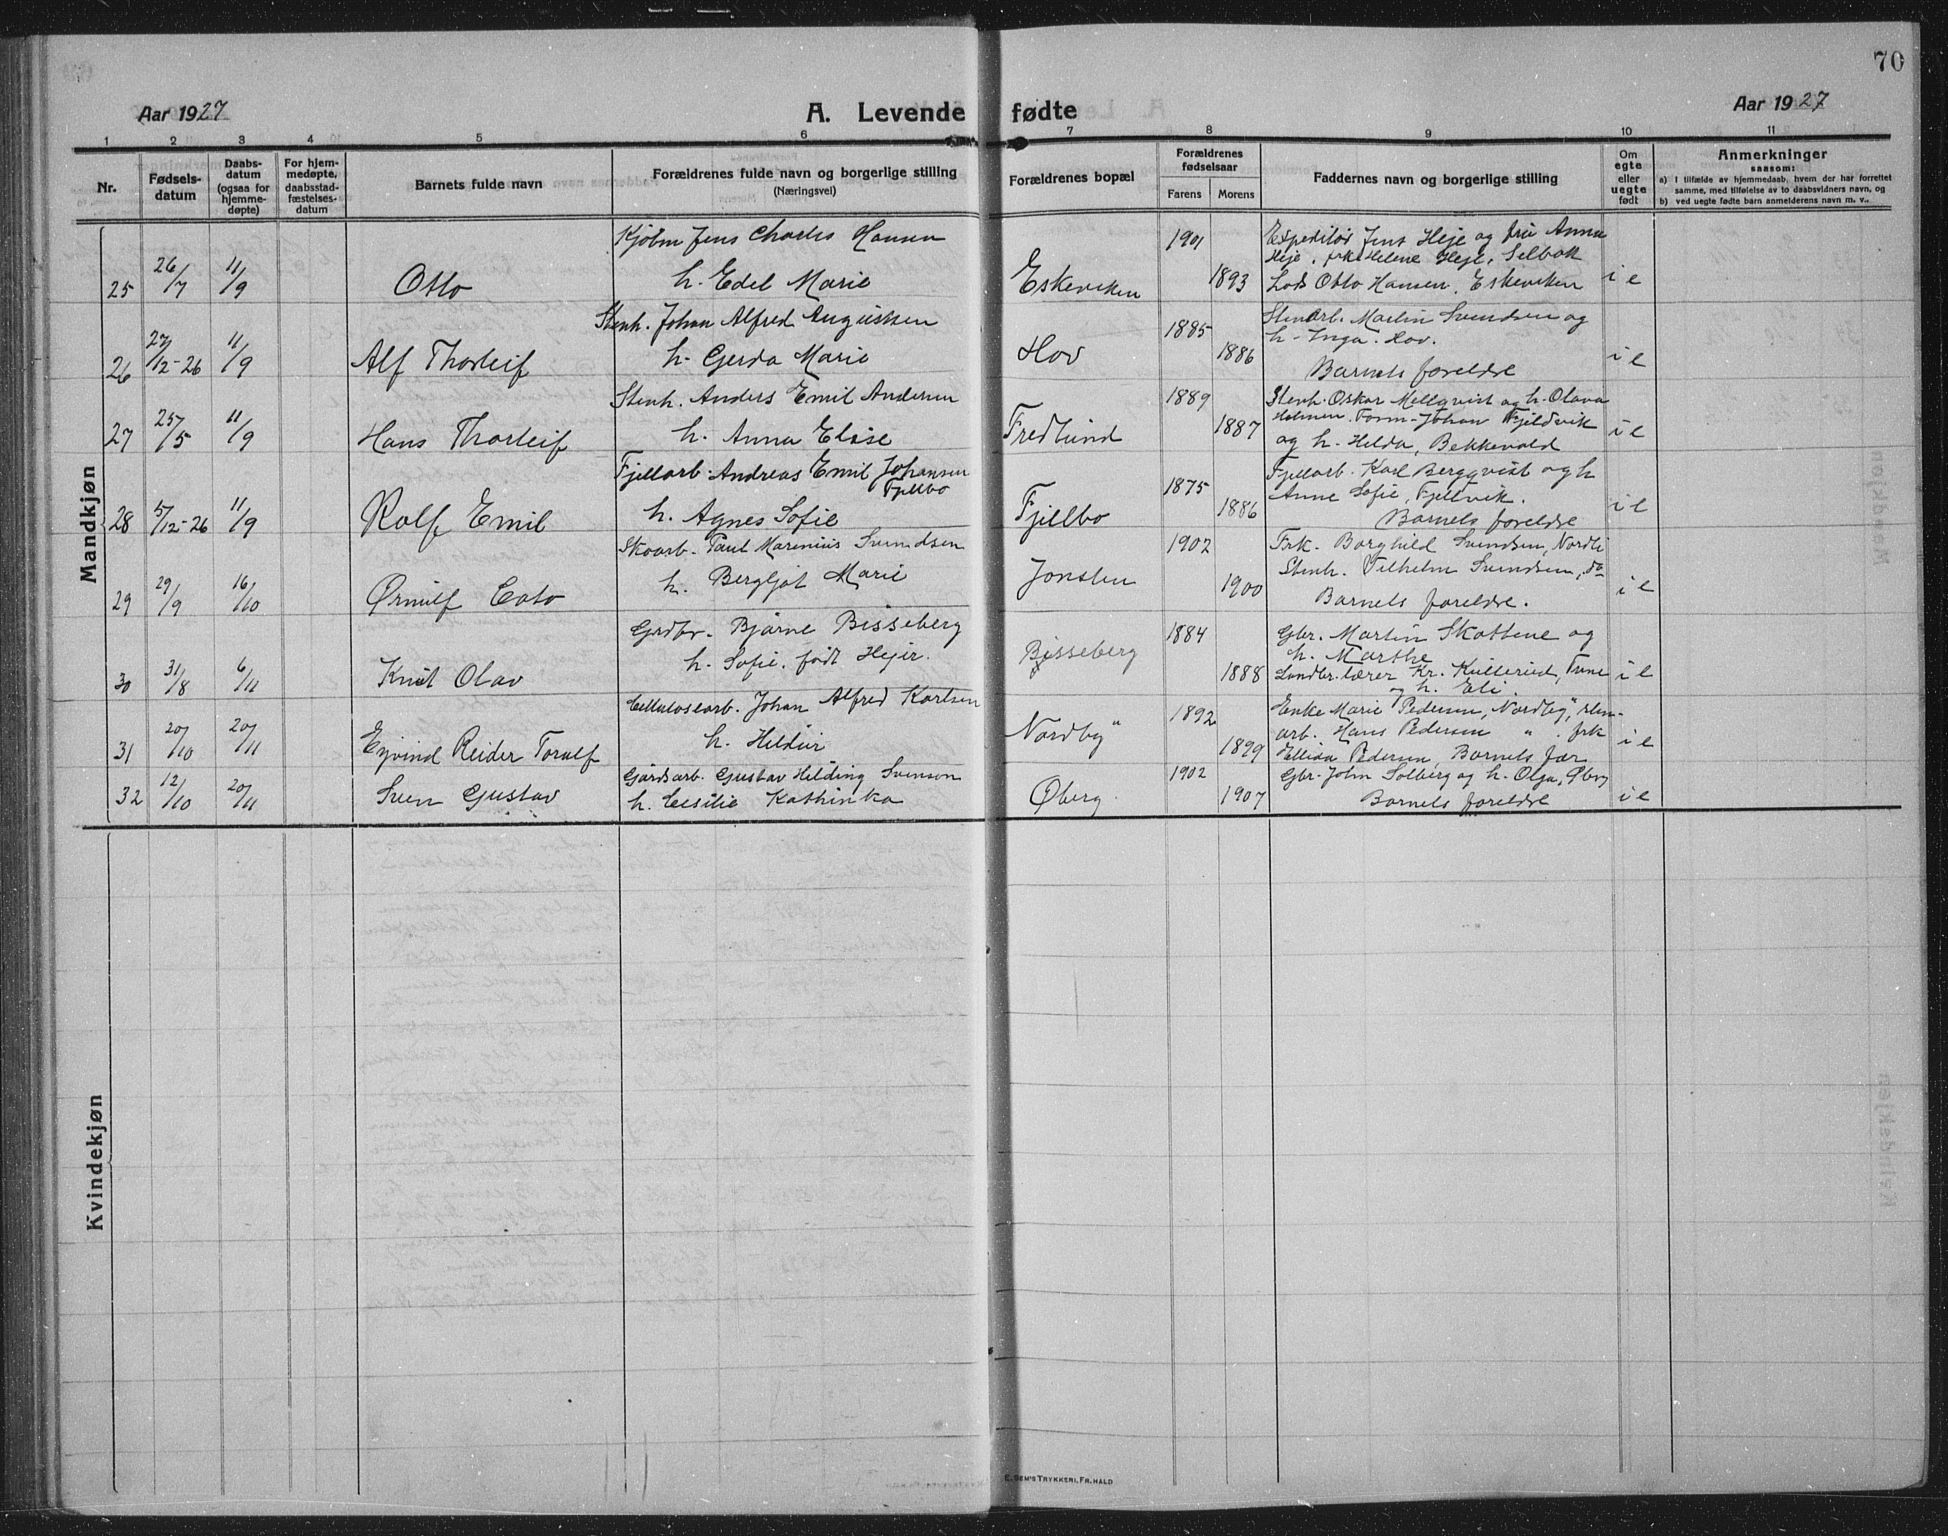 70
Aar 1927
A. Levende fødte
Aar 1927
1 2 3 4 5 6 7 8 9 10 11
Nr.
Fødsels-
datum
Daabs-
datum
(ogsaa for
hjemme-
døpte)
For hjem-
medøpte,
daabsstad-
fæstelses-
datum
Barnets fulde navn
Forældrenes fulde navn og borgerlige stilling
(Næringsvei)
Forældrenes bopæl
Forældrenes
fødselsaar
Farens Morens
Faddernes navn og borgerlige stilling
Om
egte
eller
uegte
født
Anmerkninger
saasom:
a) I tilfælde av hjemmedaab, hvem der har forrettet
samme, med tilføielse av to daabsvidners navn, og
b) ved uegte fødte barn anmelderens navn m. v..
Mandkjøn
25 26/7 11/9 Otto
Kjøbm Jens Charles Hansen
h. Edel Marie
Eskeviken
1901 1893
Expeditør Jens Heje og fru Anna
Heje, frk Helene Heje, Selbak
Lods Otto Hansen, Eskeviken
i e
26 27/12-26 11/9 Alf Thorleif
Stenh. Johan Alfred Augustsen
h. Gerda Marie
Hov
1885 1886
Stenarb. Martin Svendsen og
h. Inga. Hov.
Barnets foreldre
i e
27 25/5 11/9 Hans Thorleif
Stenh. Anders Emil Andersen
h. Anna Elise
Fredlund
1889 1887
Stenh. Oskar Mellqvist og h. Olava
Holmen. Form. Johan Fjeldvik
og h. Hilda, Bekkevold
i e
28 5/12-26 11/9 Rolf Emil
Fjellarb. Andreas Emil Johansen
Fjellbo
h. Agnes Sofie
Fjellbo
1875 1886
Fjellarb. Karl Bergqvist og h
Anne Sofie, Fjellvik.
Barnets foreldre
i e
29 29/9 16/10 Ørnulf Cato
Skoarb. Paul Marenius Svendsen
h. Bergljot Marie
Jonsten
1902 1900
Frk. Borghild Svendsen, Nordli
Stenh. Vilhelm Svendsen, do
Barnets foreldre.
i e
30 31/8 6/11 Knut Olav
Grdbr. Bjarne Bisseberg
h. Sofie, født Hejer.
Bisseberg
1884 1888
Gbr. Martin Skattene og
h. Marthe
Landbr. lærer Kr. Kullerud, Tune
og h. Eli.
i e
31 20/10 20/11 Ejvind Reider Toralf
Cellulosearb. Johan Alfred Karlsen
h. Hildur
Nordby"
1892 1899
Enke Marie Pedersen, Nordby", sten-
arb. Hans Pedersen " . frk
Ellida Pedersen, Barnets far
i e
32 12/10 20/11 Sven Gustav
Gårdsarb. Gustav Hilding Svenson
h. Cecilie Kathinka
Øberg.
1902 1907
Gbr. John Solberg og h. Olga, Øberg
Barnets foreldre
i e
Kvindekjøn
E. SEM'S TRYKKERI, FR.HALD